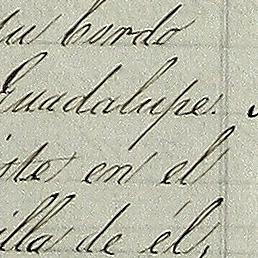 su bordo
Guadalupe.
iste en el
illa de él,